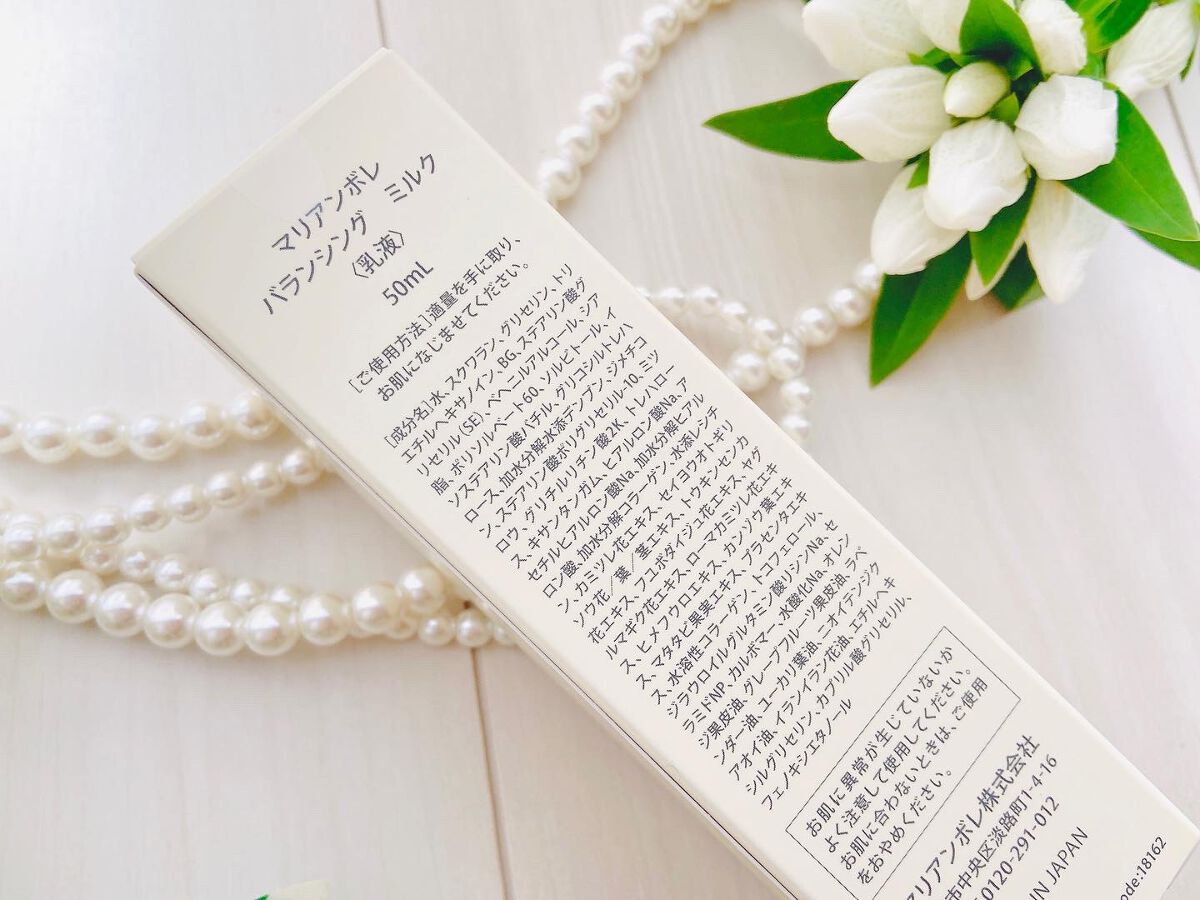 マリアンボレ
バランシング　ミルク
〈乳液〉
50mL
[ご使用方法]適量を手に取り、
お肌になじませてください。
[成分名]水、スクワラン、グリセリン、トリ
エチルヘキサノイン、BG、ステアリン酸グ
リセリル(SE)、ベヘニルアルコール、シア
脂、ポリソルベート60、ソルビトール、イ
ソステアリン酸バチル、グリコシルトレハ
ロース、加水分解水添デンプン、ジメチコ
ン、ステアリン酸ポリグリセリル-10、ミツ
ロウ、グリチルリチン酸2K、トレハロー
ス、キサンタンガム、ヒアルロン酸Na、ア
セチルヒアルロン酸Na、加水分解ヒアル
ロン酸、加水分解コラーゲン、水添レシチ
ン、カミツレ花エキス、セイヨウオトギリ
ソウ花／葉／茎エキス、トウキンセンカ
花エキス、フユボダイジュ花エキス、ヤグ
ルマギク花エキス、ローマカミツレ花エキ
ス、ヒメフウロエキス、カンゾウ葉エキ
ス、マタタビ果実エキス、プラセンタエキ
ス、水溶性コラーゲン、トコフェロール、
ジラウロイルグルタミン酸リシンNa、セ
ラミドNP、カルボマー、水酸化Na、オレン
ジ果皮油、グレープフルーツ果皮油、ラベ
ンダー油、ユーカリ葉油、ニオイテンジク
アオイ油、イランイラン花油、エチルヘキ
シルグリセリン、カプリル酸グリセリル、
フェノキシエタノール
お肌に異常が生じていないか
よく注意して使用してください。
お肌に合わないときは、ご使用
をおやめください。
マリアンボレ株式会社
市中央区淡路町1-4-16
0120-291-012
IN JAPAN
ode:18162